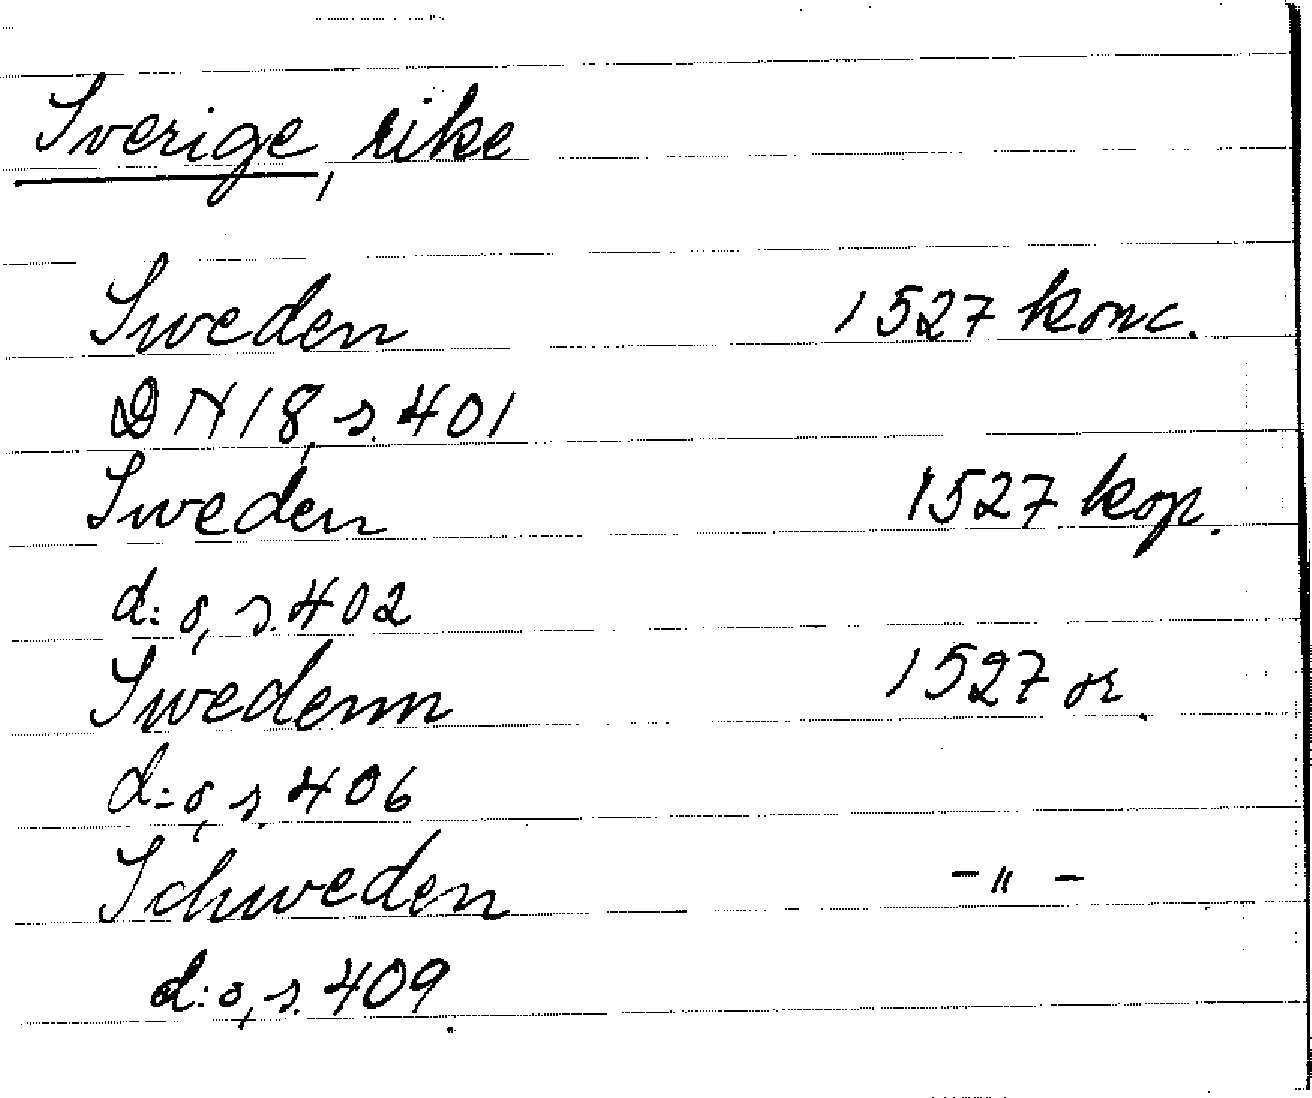 Sverige, rike
Sweden 1527 konc.
DN 18, s. 401
Sweden 1527 kop.
d:o, s. 402
Swedenn 1527 or.
d:o, s. 406
Schweden -"-
d:o, s. 409.